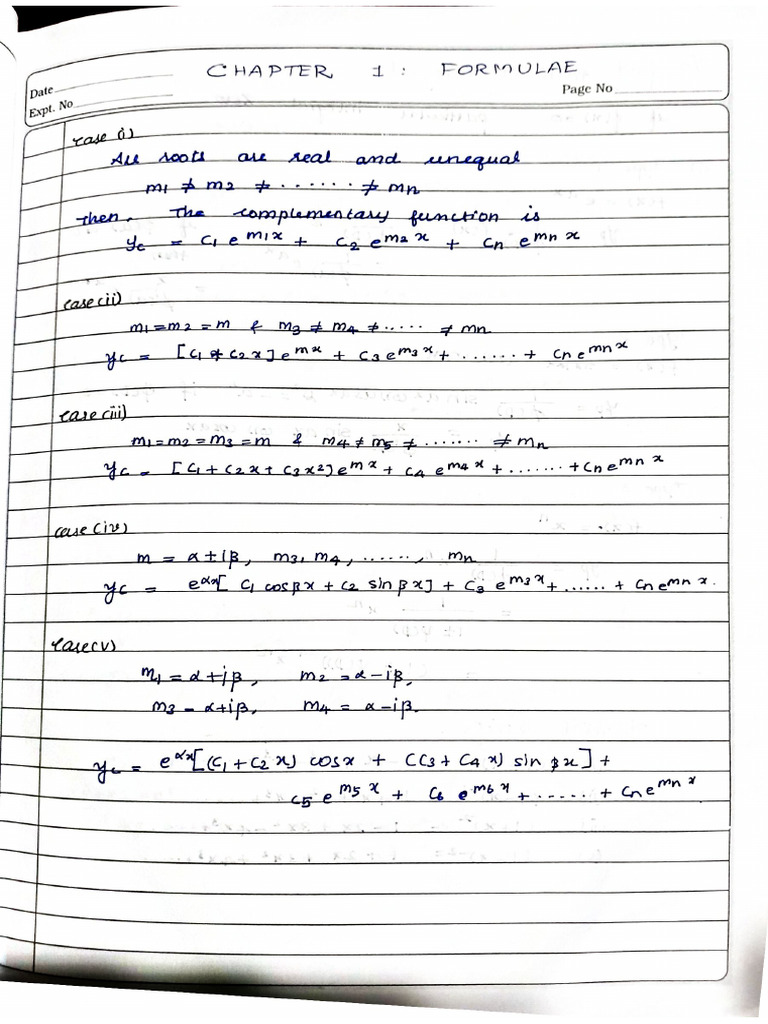 CHAPTER 1 : FORMULAE
Date
Page No
Expt. No
case (i)
All roots are real and unequal
m₁ ≠ m₂ ≠ ...... ≠ mₙ
Then. The complementary function is
y꜀ = C₁ e^m₁x + C₂ e^m₂x + Cₙ e^mₙx
case (ii)
m₁ = m₂ = m & m₃ ≠ m₄ ≠ ..... ≠ mₙ
y꜀ = [C₁ + C₂x] e^mx + C₃ e^m₃x + ...... + Cₙ e^mₙx
case (iii)
m₁ = m₂ = m₃ = m & m₄ ≠ m₅ ≠ ....... ≠ mₙ
y꜀ = [C₁ + C₂x + C₃x²] e^mx + C₄ e^m₄x + ....... + Cₙ e^mₙx
case (iv)
m = α ± iβ, m₃, m₄, ......, mₙ
y꜀ = e^αx [ C₁ cosβx + C₂ sinβx] + C₃ e^m₃x + ...... + Cₙ e^mₙx.
case (v)
m₁ = α + iβ, m₂ = α - iβ,
m₃ = α + iβ, m₄ = α - iβ.
y꜀ = e^αx [(C₁ + C₂x) cosx + (C₃ + C₄x) sin βx] +
C₅ e^m₅x + C₆ e^m₆x + ...... + Cₙ e^mₙx